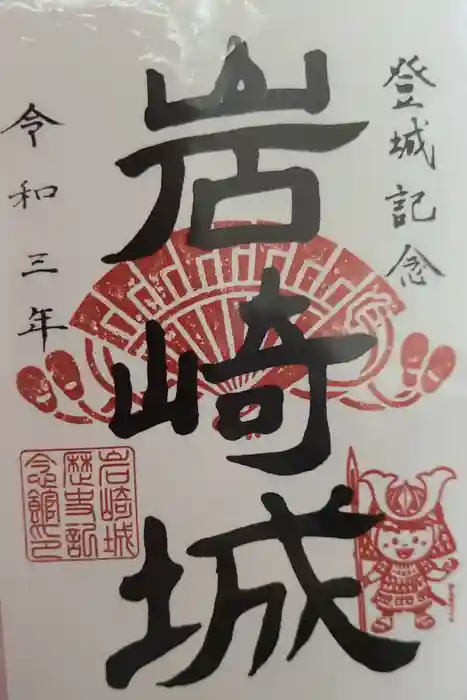 登城記念
岩崎城
令和三年
岩崎城
歴史記
念館印